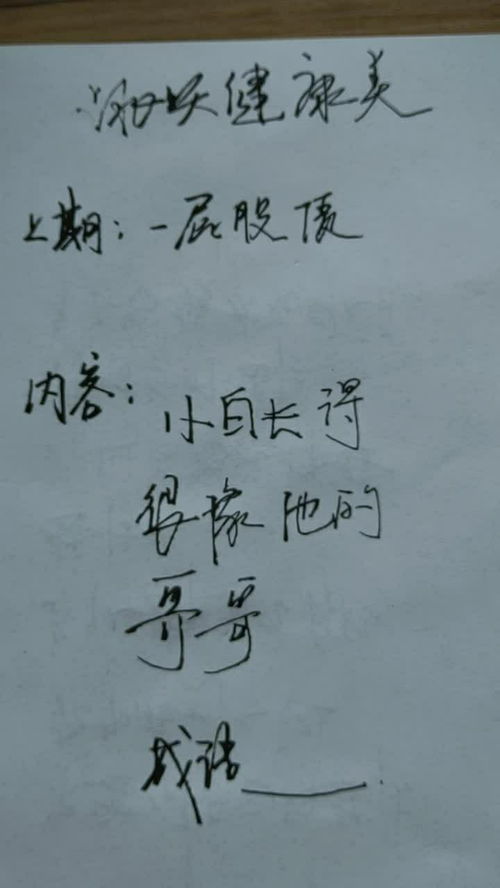 健康美
上期：一屁股债
内容：小白长得
很像他的
哥哥
成语____.